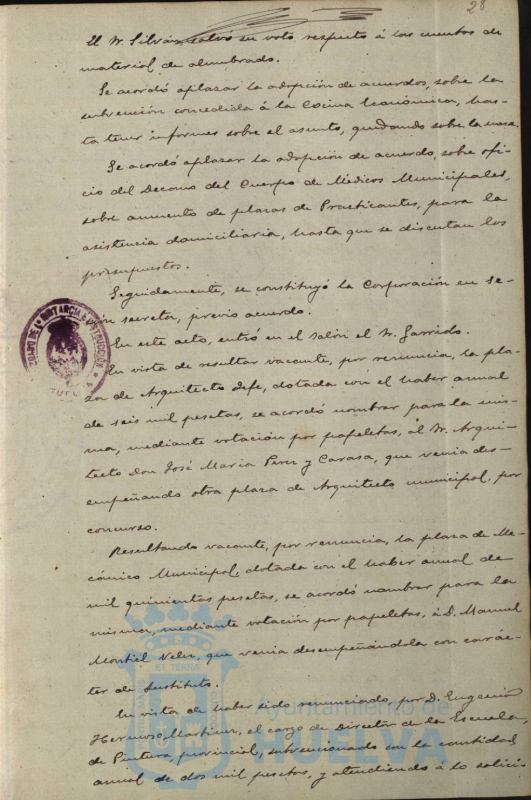 28
El Sr. Silván, salvó su voto respecto á las cuentas de
material de alumbrado.
Se acordó aplazar la adopción de acuerdos, sobre la
subvención concedida á la Cocina Económica, has-
ta tener informes sobre el asunto, quedando sobre la mesa.
Se acordó aplazar la adopción de acuerdo, sobre ofi-
cio del Decano del Cuerpo de Médicos Municipales,
sobre aumento de plazas de Practicantes, para la
asistencia domiciliaria, hasta que se discutan los
presupuestos.
Seguidamente, se constituyó la Corporación en se-
sión secreta, previo acuerdo.
En este acto, entró en el Salón el Sr. Garrido.
En vista de resultar vacante, por renuncia, la pla-
za de Arquitecto Jefe, dotada con el haber anual
de seis mil pesetas, se acordó nombrar para la mis-
ma, mediante votación por papeletas, al Sr. Arqui-
tecto Don José María Perez y Carasa, que venia des-
empeñando otra plaza de Arquitecto municipal, por
concurso.
Resultando vacante, por renuncia, la plaza de Me-
cánico Municipal, dotada con el haber anual de
mil quinientas pesetas, se acordó nombrar para la
misma, mediante votación por papeletas, á D. Manuel
Montiel Velez, que venia desempeñándola con carác-
ter de Sustituto.
En vista de haber sido renunciado, por D. Eugenio
Hermoso Martinez, el cargo de Director de la Escuela
de Pintura provincial, subvencionado con la cantidad
anual de dos mil pesetas, y atendiendo á lo solici-
Ayuntamiento de
HUELVA